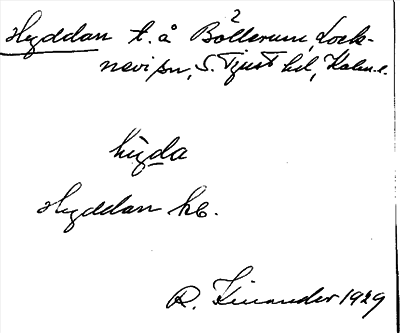 Hyddan t. å Böllerum, Lock-
nevi sn, S. Tjust hd, Kalm. l.
hy̆da
Hyddan kb.
R. Kinander 1929